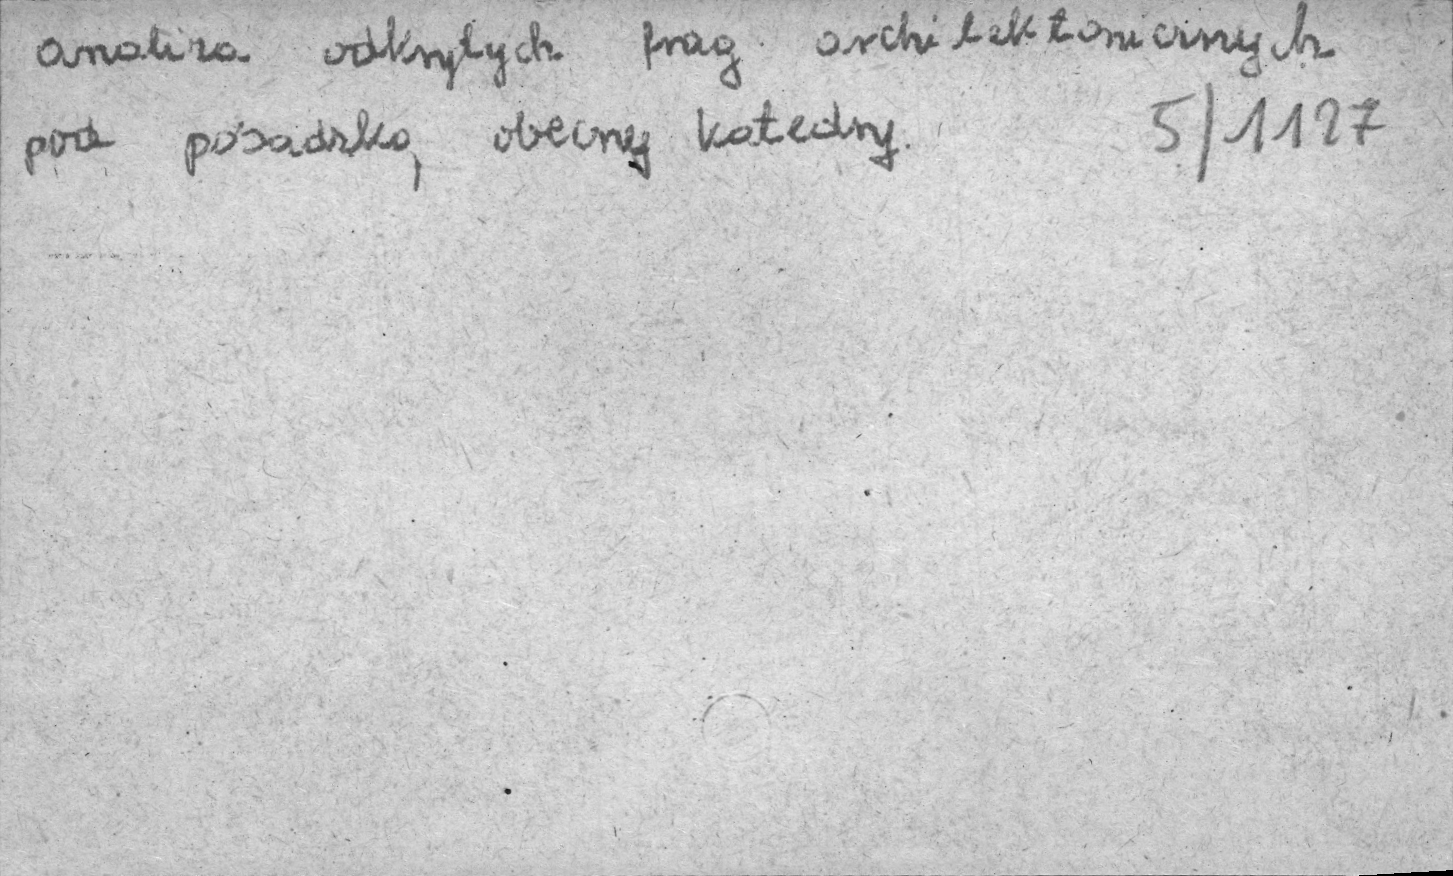 analiza odkrytych frag. architektonicznych
pod posadzką obecnej katedry. 5/1127